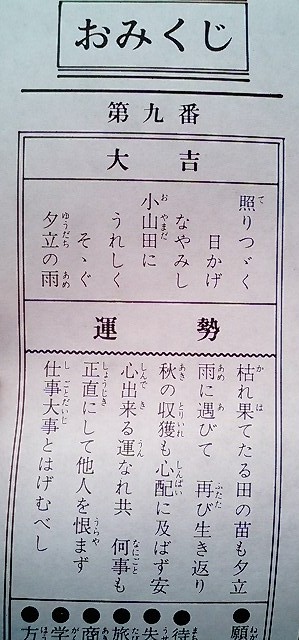 おみくじ
第九番
大吉
照りつゞく
日かげ
なやみし
小山田に
うれしく
そゝぐ
夕立の雨
運勢
枯れ果てたる田の苗も夕立
雨に遇びて 再び生き返り
秋の収獲も心配に及ばず安
心出来る運なれ共 何事も
正直にして他人を恨まず
仕事大事とはげむべし
願
待
失
旅
商
学
方